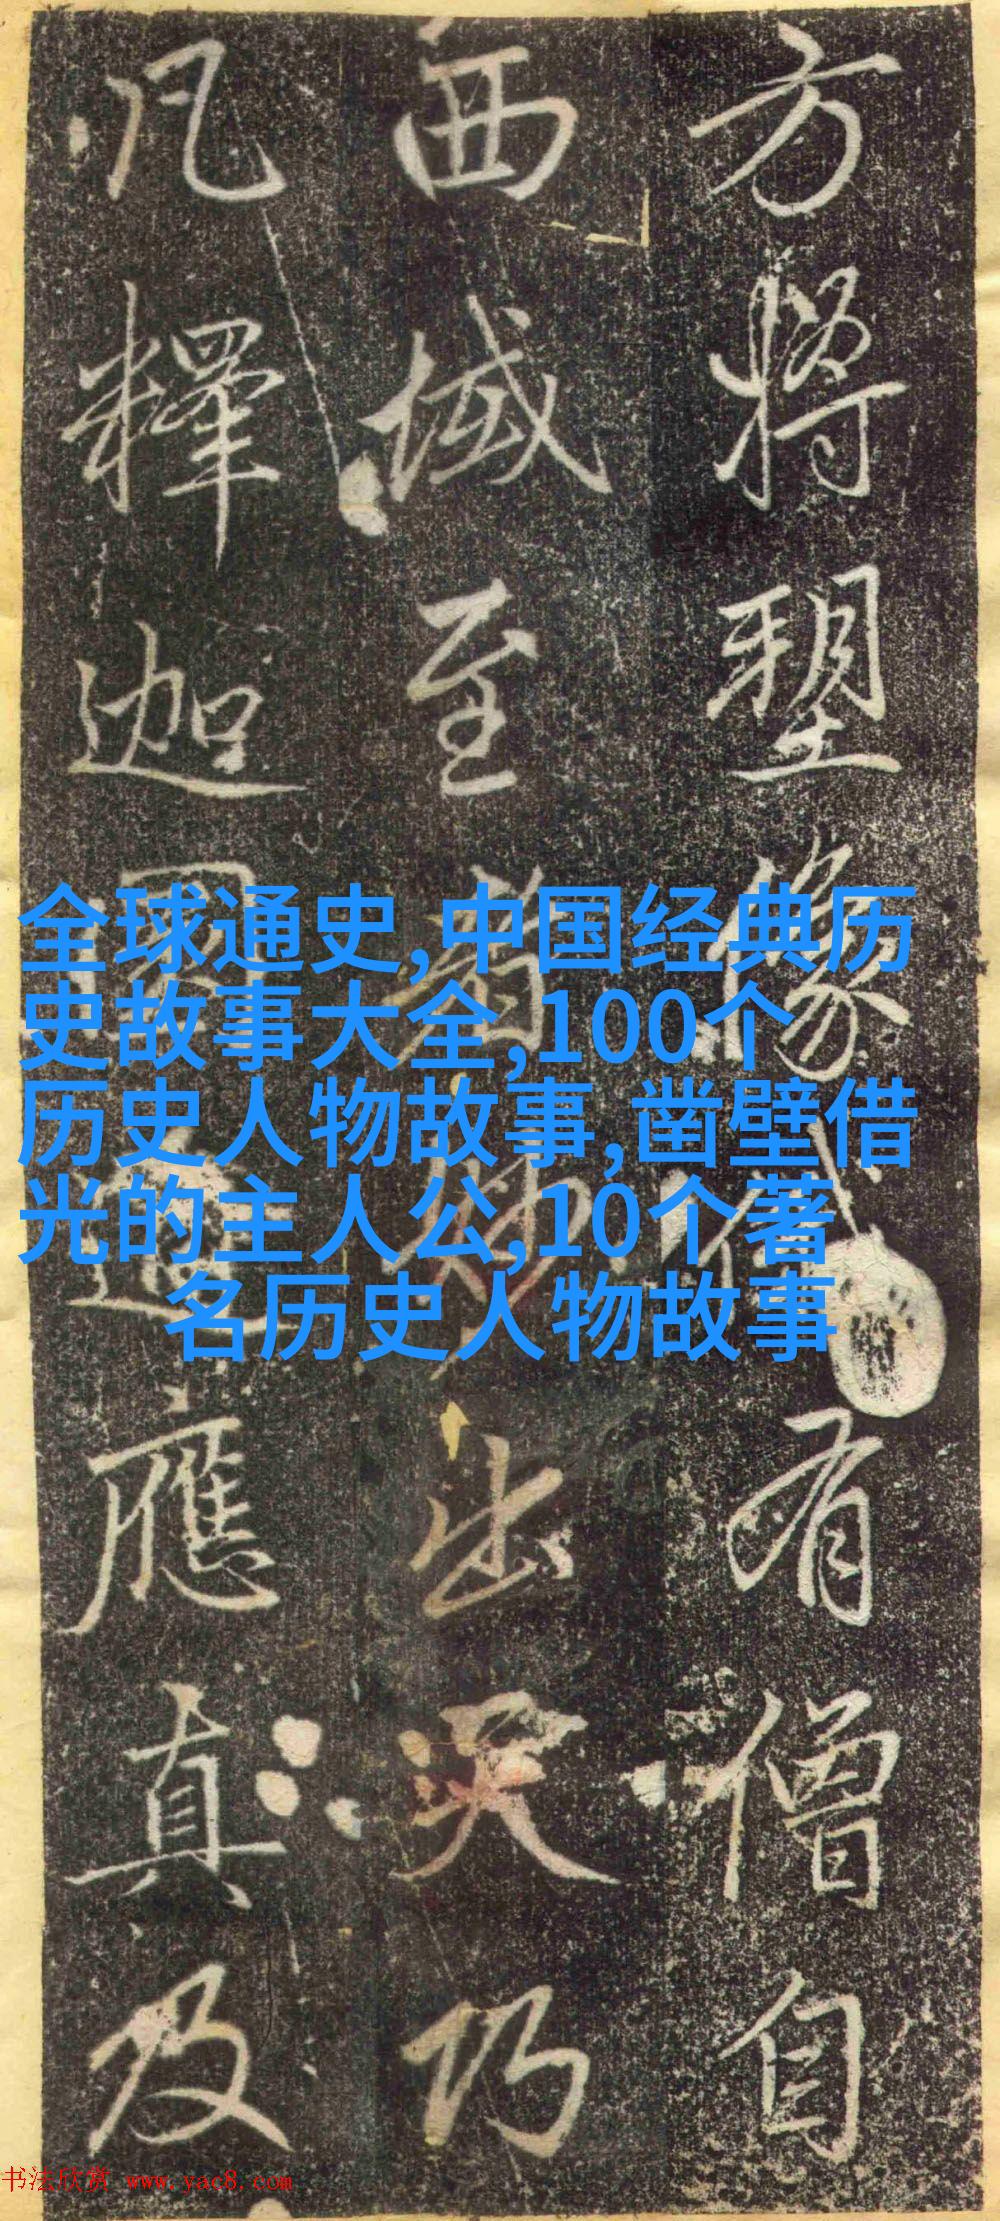 方將塑像有僧自
西域至者妙出天巧
凡釋迦應真及
全球通史,中国经典历
史故事大全,100个
历史人物故事,凿壁借
光的主人公,10个著
名历史人物故事
书法欣赏 www.yac8.com